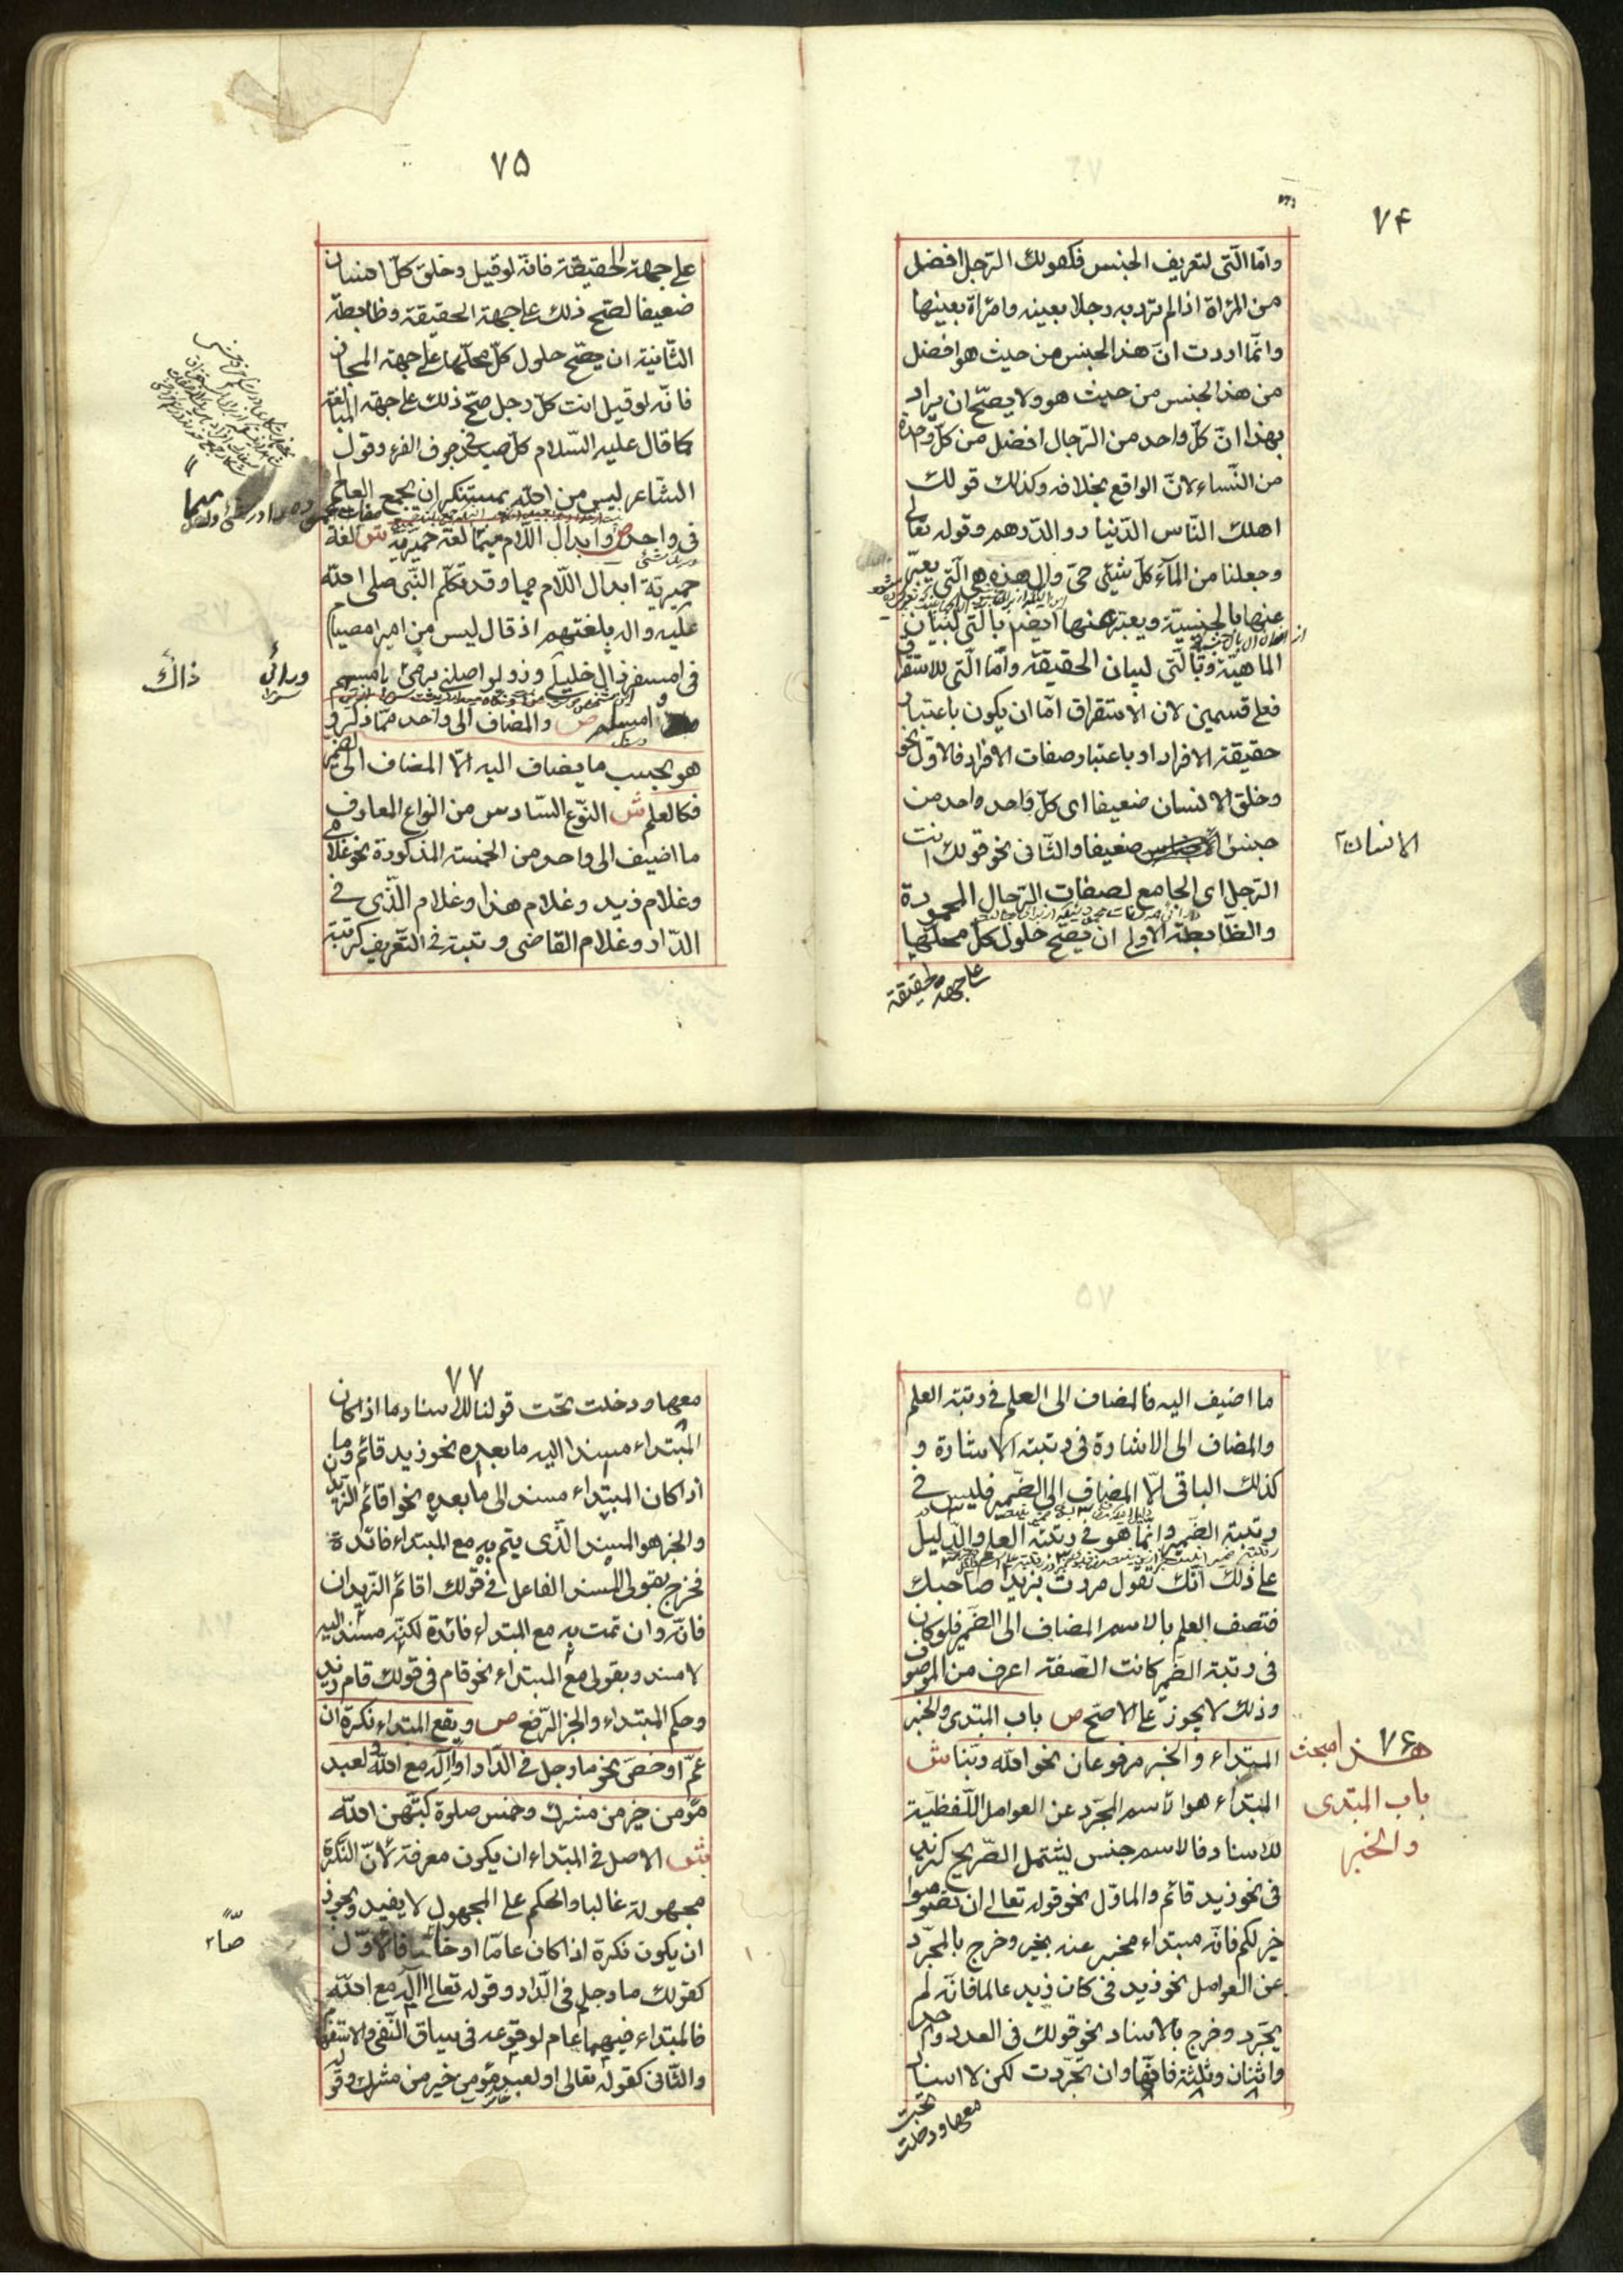 ۷۴
وامّا الّتى لتعريف الجنس فكقولك الرّجل افضل
من المرأة اذا لم ترد به رجلا بعينه وامرأة بعينها
وانّما اردت انّ هذا الجنس من حيث هو افضل
من هذا الجنس من حيث هو ولا يصحّ ان يراد
بهذا انّ كلّ واحد من الرّجال افضل من كلّ واحدة
من النّساء لانّ الواقع بخلافه وكذلك قولك
اهلك النّاس الدّينار والدّرهم وقوله تعالى
وجعلنا من المآء كلّ شيئى حىّ وال هذه هى الّتى يعبّر
عنها بالجنسيّة ويعبّر عنها ايضم بالّتى لبيان
الماهيّة وبالّتى لبيان الحقيقة وامّا الّتى للاستغراق
فعلى قسمين لان الاستغراق امّا ان يكون باعتبار
حقيقة الافراد او باعتبار صفات الافراد فالاوّل نحو
وخلق الانسان ضعيفا اى كلّ واحد واحد من
جنس ضعيفا والثّانى نحو قولك انت
الانسان
الرّجل اى الجامع لصفات الرّجال المحمودة
والضّابطة الاولى ان يصّح حلول كلّ محلّها
على جهة الحقيقة
۷۵
على جهة الحقيقة فانّه لو قيل وخلق كلّ انسان
ضعيفا لصّح ذلك على جهة الحقيقة وضابطة
الثّانية ان يصّح حلول كلّ محلّها على جهة المجاز
فانّه لو قيل انت كلّ رجل صّح ذلك على جهة المبالغة
كما قال عليه السّلام كلّ صيد فى جوف الفرء وقول
الشّاعر ليس من الله بمستنكر ان يجمع العالم
فى واحد ص وابدال اللّام ميما لغة حميريّة ش لغة
حميريّة ابدال اللّام ميما وقد تكلّم النّبى صلى الله
عليه واله بلغتهم اذ قال ليس من امبر امصيام
فى امسفر ذاك خليلى وذو يواصلنى يرمى ورائى بامسهم
ورائى
ذاك
وامسلمه ص والمضاف الى واحد ممّا ذكر و
هو بحسب ما يضاف اليه الّا المضاف الى الضمير
فكالعلم ش النّوع السّادس من انواع المعارف
ما اضيف الى واحد من الخمسة المذكورة نحو غلامى
وغلام زيد وغلام هذا وغلام الّذى فى
الدّار وغلام القاضى ورتبته فى التّعريف كرتبة
ما اضيف اليه فالمضاف الى العلم فى رتبة العلم
والمضاف الى الاشارة فى رتبة الاشارة و
كذلك الباقى الّا المضاف الى الضّمير فليس فى
رتبة الضّمير وانّما هو فى رتبة العلم والدّليل
على ذلك انّك تقول مررت بزيد صاحبك
فتصف العلم بالاسم المضاف الى الضّمير فلو كان
فى رتبة الضّمير كانت الصّفة اعرف من الموصوف
وذلك لا يجوز على الاصّح ص باب المبتدى والخبر
۷۶
هذا مبحث
باب المبتدى
والخبر
المبتداء والخبر مرفوعان نحو الله ربّنا ش
المبتداء هو الاسم المجّرد عن العوامل اللّفظيّة
للاسناد فالاسم جنس يشتمل الصّريح كزيد
فى نحو زيد قائم والماوّل نحو قوله تعالى ان تصوموا
خير لكم فانّه مبتداء مخبر عنه بخير وخرج بالمجّرد
عن العوامل نحو زيد فى كان زيد عالما فانّه لم
يجّرد وخرج بالاسناد نحو قولك فى العدد واحد
واثنان وثلثة فانّها وان تجّردت لكن لا اسناد
معها ودخلت تحت
۷۷
معها ودخلت تحت قولنا للاسناد ما اذا كان
المبتداء مسندا اليه ما بعده نحو زيد قائم وما
اذا كان المبتداء مسندا الى ما بعده نحو اقائم الزّيدان
والخبر هو المسند الّذى يتم به مع المبتداء فائدة
فخرج بقولى المسند الفاعل فى قولك اقائم الزّيدان
فانّه وان تمت به مع المبتداء فائدة لكنّه مسند اليه
لا مسند وبقولى مع المبتداء نحو قام فى قولك قام زيد
وحكم المبتداء والخبر الرّفع ص ويقع المبتداء نكرة ان
عمّ او خصّ نحو ما رجل فى الدّار اواله مع الله ولعبد
مؤمن خير من مشرك وخمس صلوة كتبّهن الله
ش الاصل فى المبتداء ان يكون معرفة لانّ النّكرة
مجهولة غالبا والحكم على المجهول لا يفيد ويجوز
ان يكون نكرة اذا كان عامّا او خاصّا فالاوّل
صّا
كقولك ما رجل فى الدّار وقوله تعالى االه مع الله
فالمبتداء فيهما عام لوقوعه فى سياق النّفى والاستفهام
والثّانى كقوله تعالى ولعبد مؤمن خير من مشرك وقو